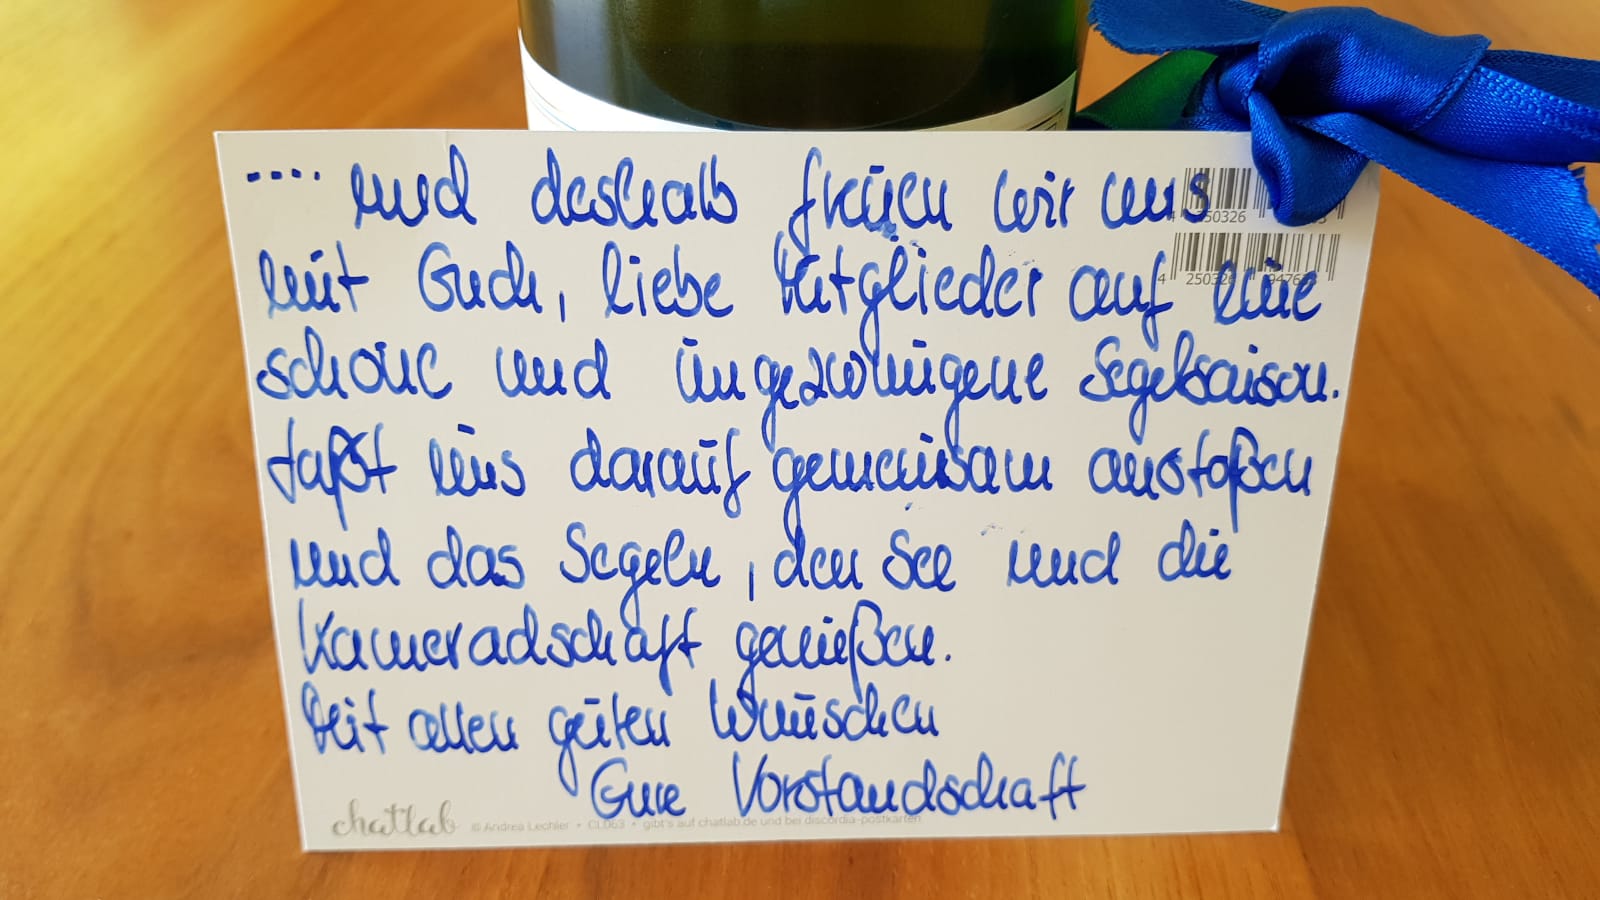 .... und deshalb freuen wir uns
mit Euch, liebe Mitglieder auf eine
schöne und ungezwungene Segelsaison.
Laßt uns darauf gemeinsam anstoßen
und das Segeln, den See und die
Kameradschaft genießen.
Mit allen guten Wünschen
Eure Vorstandschaft
4 250326
4 250326 94763
chatlab © Andrea Lechler • CL063 • gibt's auf chatlab.de und bei discordia-postkarten